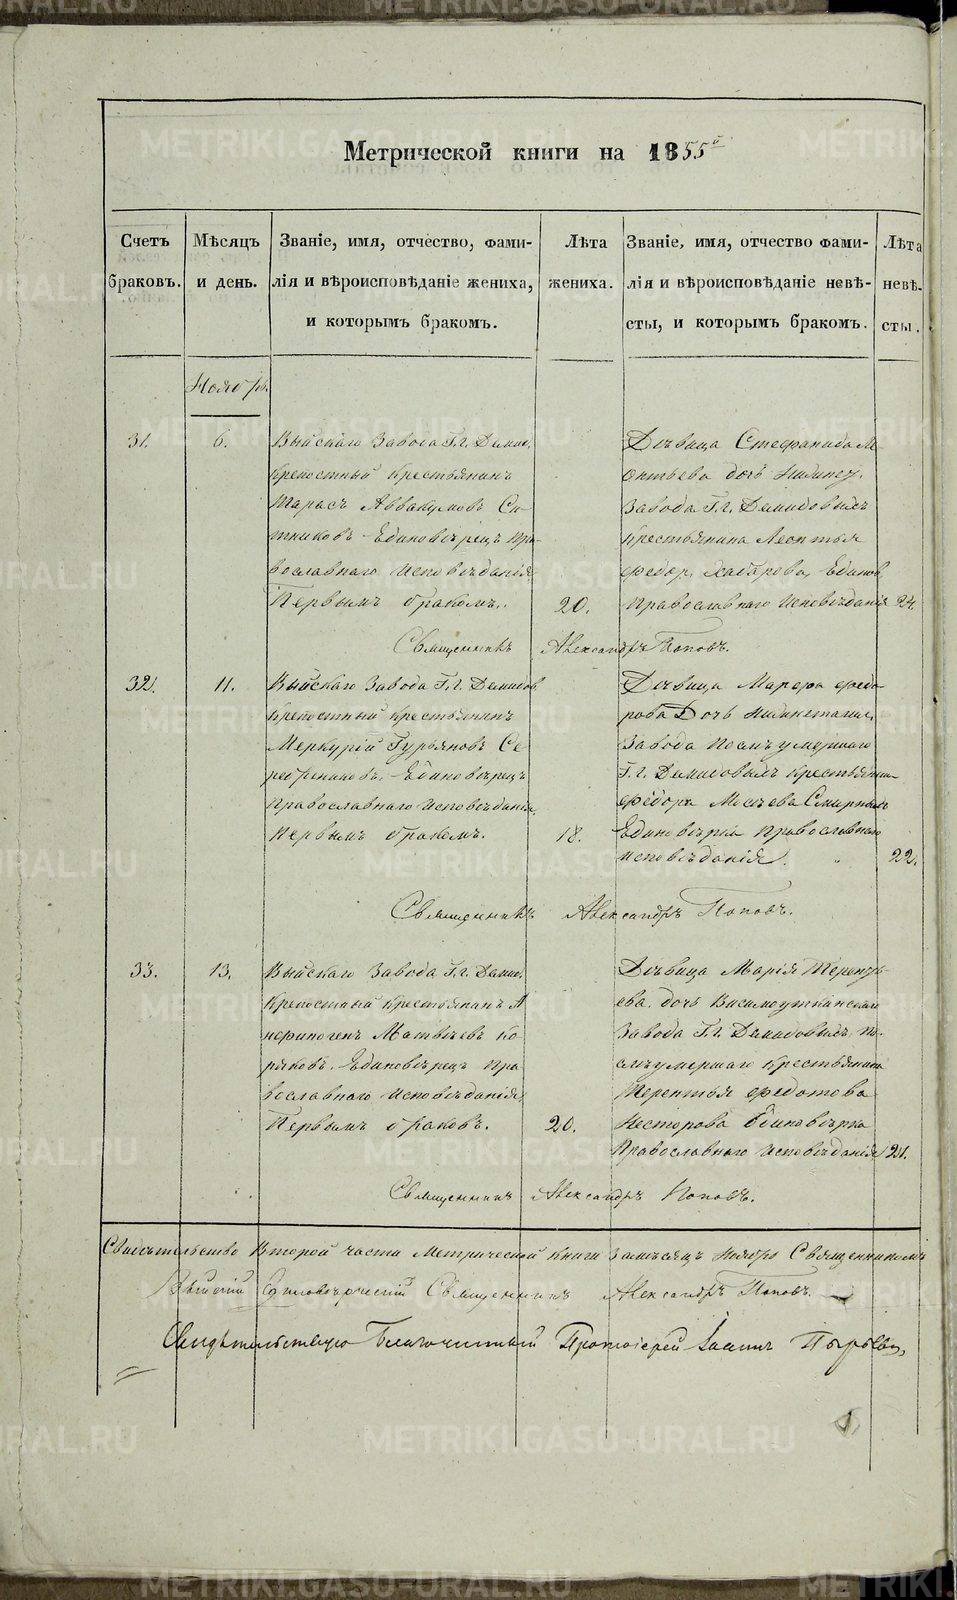 Метрической книги на 1855й
Счетъ браковъ.
Мѣсяцъ и день.
Званіе, имя, отчество, фами-
лія и вѣроисповѣданіе жениха,
и которымъ бракомъ.
Лѣта жениха.
Званіе, имя, отчество фами-
лія и вѣроисповѣданіе невѣ-
сты, и которымъ бракомъ.
Лѣта невѣ-
сты.
Ноябрь.
31.
6.
Выйскаго Завода Г.г. Демид.
Крепостный крестьянинъ
Тарасъ Аввакумовъ Си-
тниковъ Единовѣрецъ пра-
вославнаго исповѣданія
Первымъ бракомъ.
20.
Дѣвица Стефанида Ле-
онтьева дочь
Завода Г.г. Демидовыхъ
крестьянина Леонтья
Федор. Хабарова, Единов.
Православнаго Исповѣданія
24.
Священникъ Александръ Поповъ.
32.
11.
Выйскаго Завода Г.г. Демидов.
Крепостный крестьянинъ
Меркурій Гурьяновъ Се-
ребрениковъ. Единовѣрецъ
Православнаго исповѣданія
Первымъ бракомъ.
18.
Дѣвица Марфа Федо-
рова Дочь Нижнетагил.
Завода послѣ умершаго
Г.г. Демидовыхъ крестьянина
Федора Смирныхъ
Единовѣрка Православнаго
исповѣданія.
22.
Священникъ Александръ Поповъ.
33.
13.
Выйскаго Завода Г.г. Демид.
Крепостный крестьянинъ А-
нфиногенъ Матвѣевъ Ко-
ряковъ. Единовѣрецъ Пра-
вославнаго Исповѣданія,
Первымъ бракомъ.
20.
Дѣвица Марія Терентъ-
ева дочь Висимоуткинскаго
Завода Г.г. Демидовыхъ по-
слѣ умершаго крестьянина
Терентья Федотова
Несторова Единовѣрка
Православнаго исповѣданія
21.
Священникъ Александръ Поповъ.
Свидѣтельство Второй части Метрической книги за мѣсяцъ Ноябрь Священникомъ
Выйскій Единовѣрческій Священникъ Александръ Поповъ.
Свидѣтельствую Благочинный Протоіерей Іоаннъ
METRIKI.GASO-URAL.RU